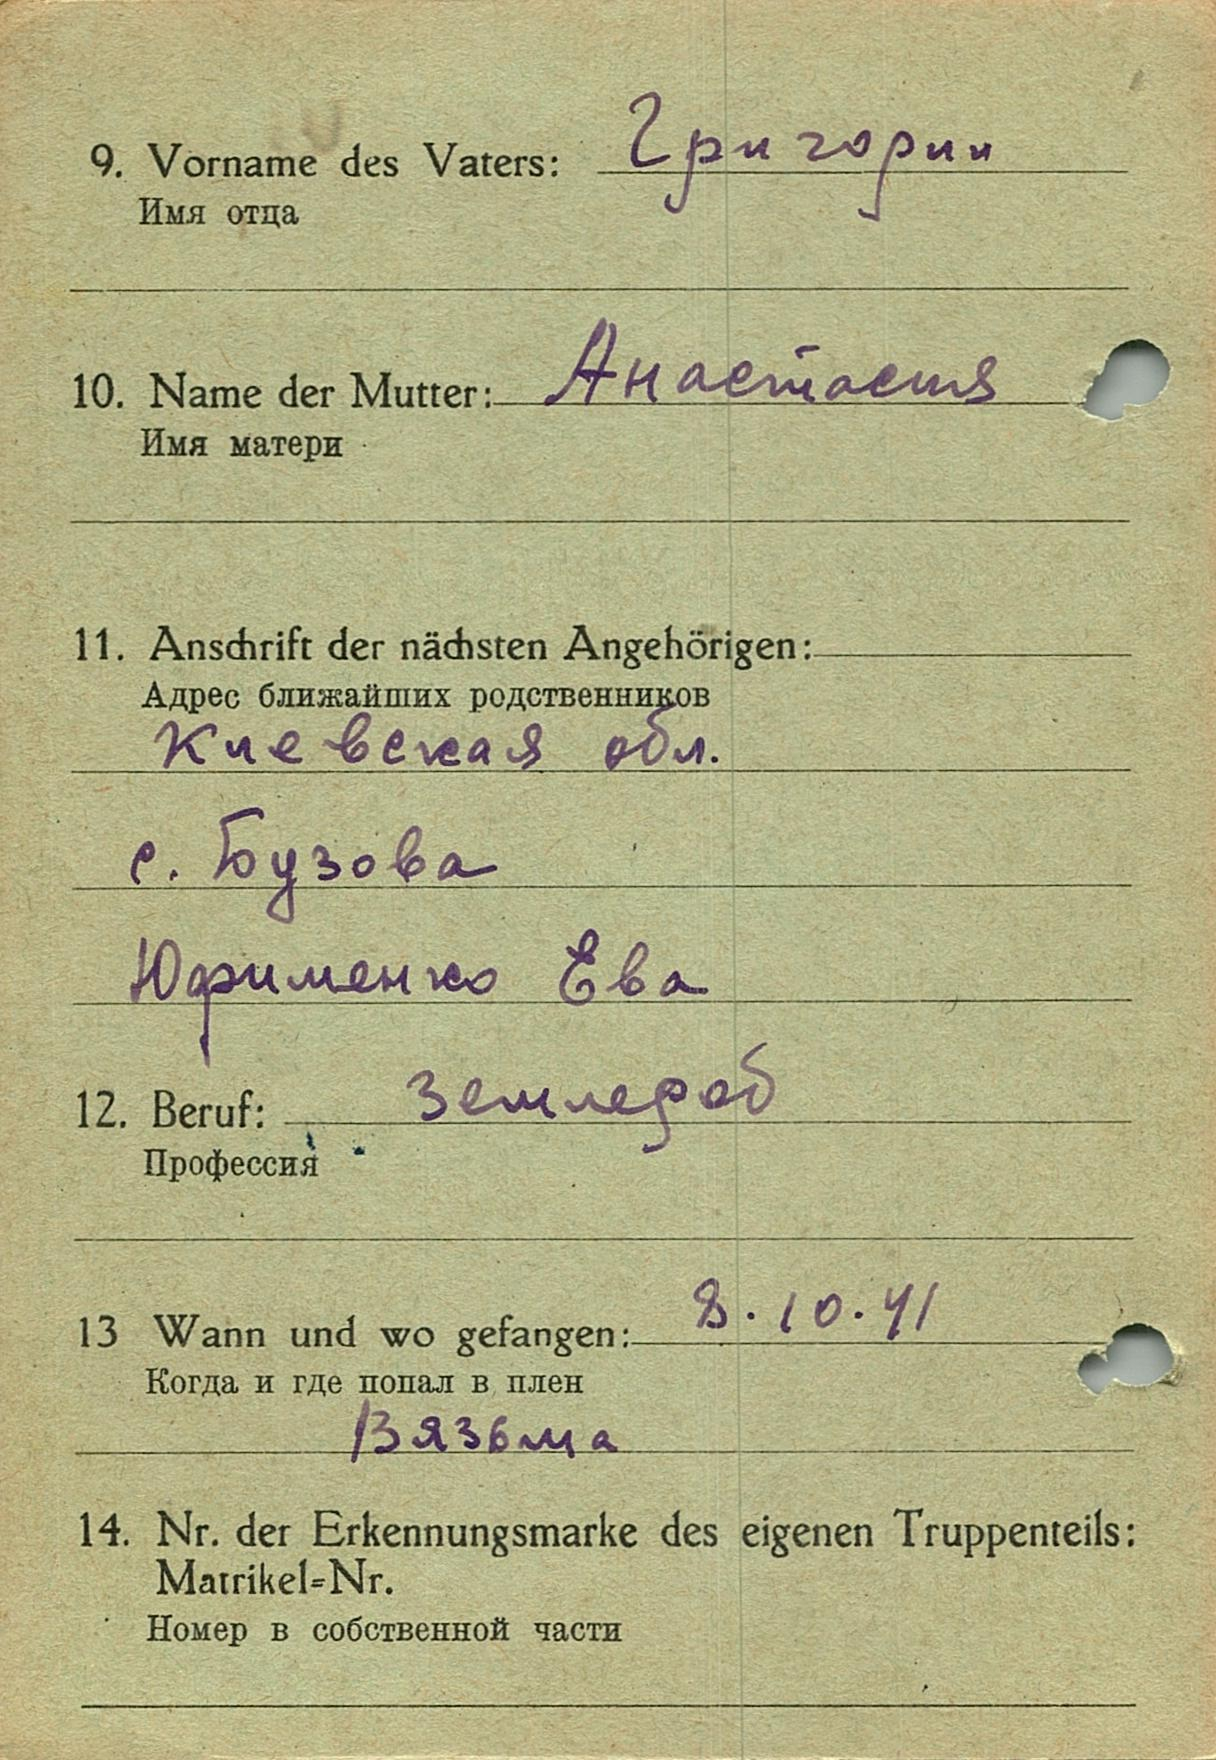 9. Vorname des Vaters: Григории
Имя отца
10. Name der Mutter: Анастасия
Имя матери
11. Anschrift der nächsten Angehörigen:
Адрес ближайших родственников
Киевская обл.
с. Бузова
Юфименко Ева
12. Beruf: Землероб
Профессия
13 Wann und wo gefangen: 8.10.41
Когда и где попал в плен
Вязьма
14. Nr. der Erkennungsmarke des eigenen Truppenteils:
Matrikel=Nr.
Номер в собственной части